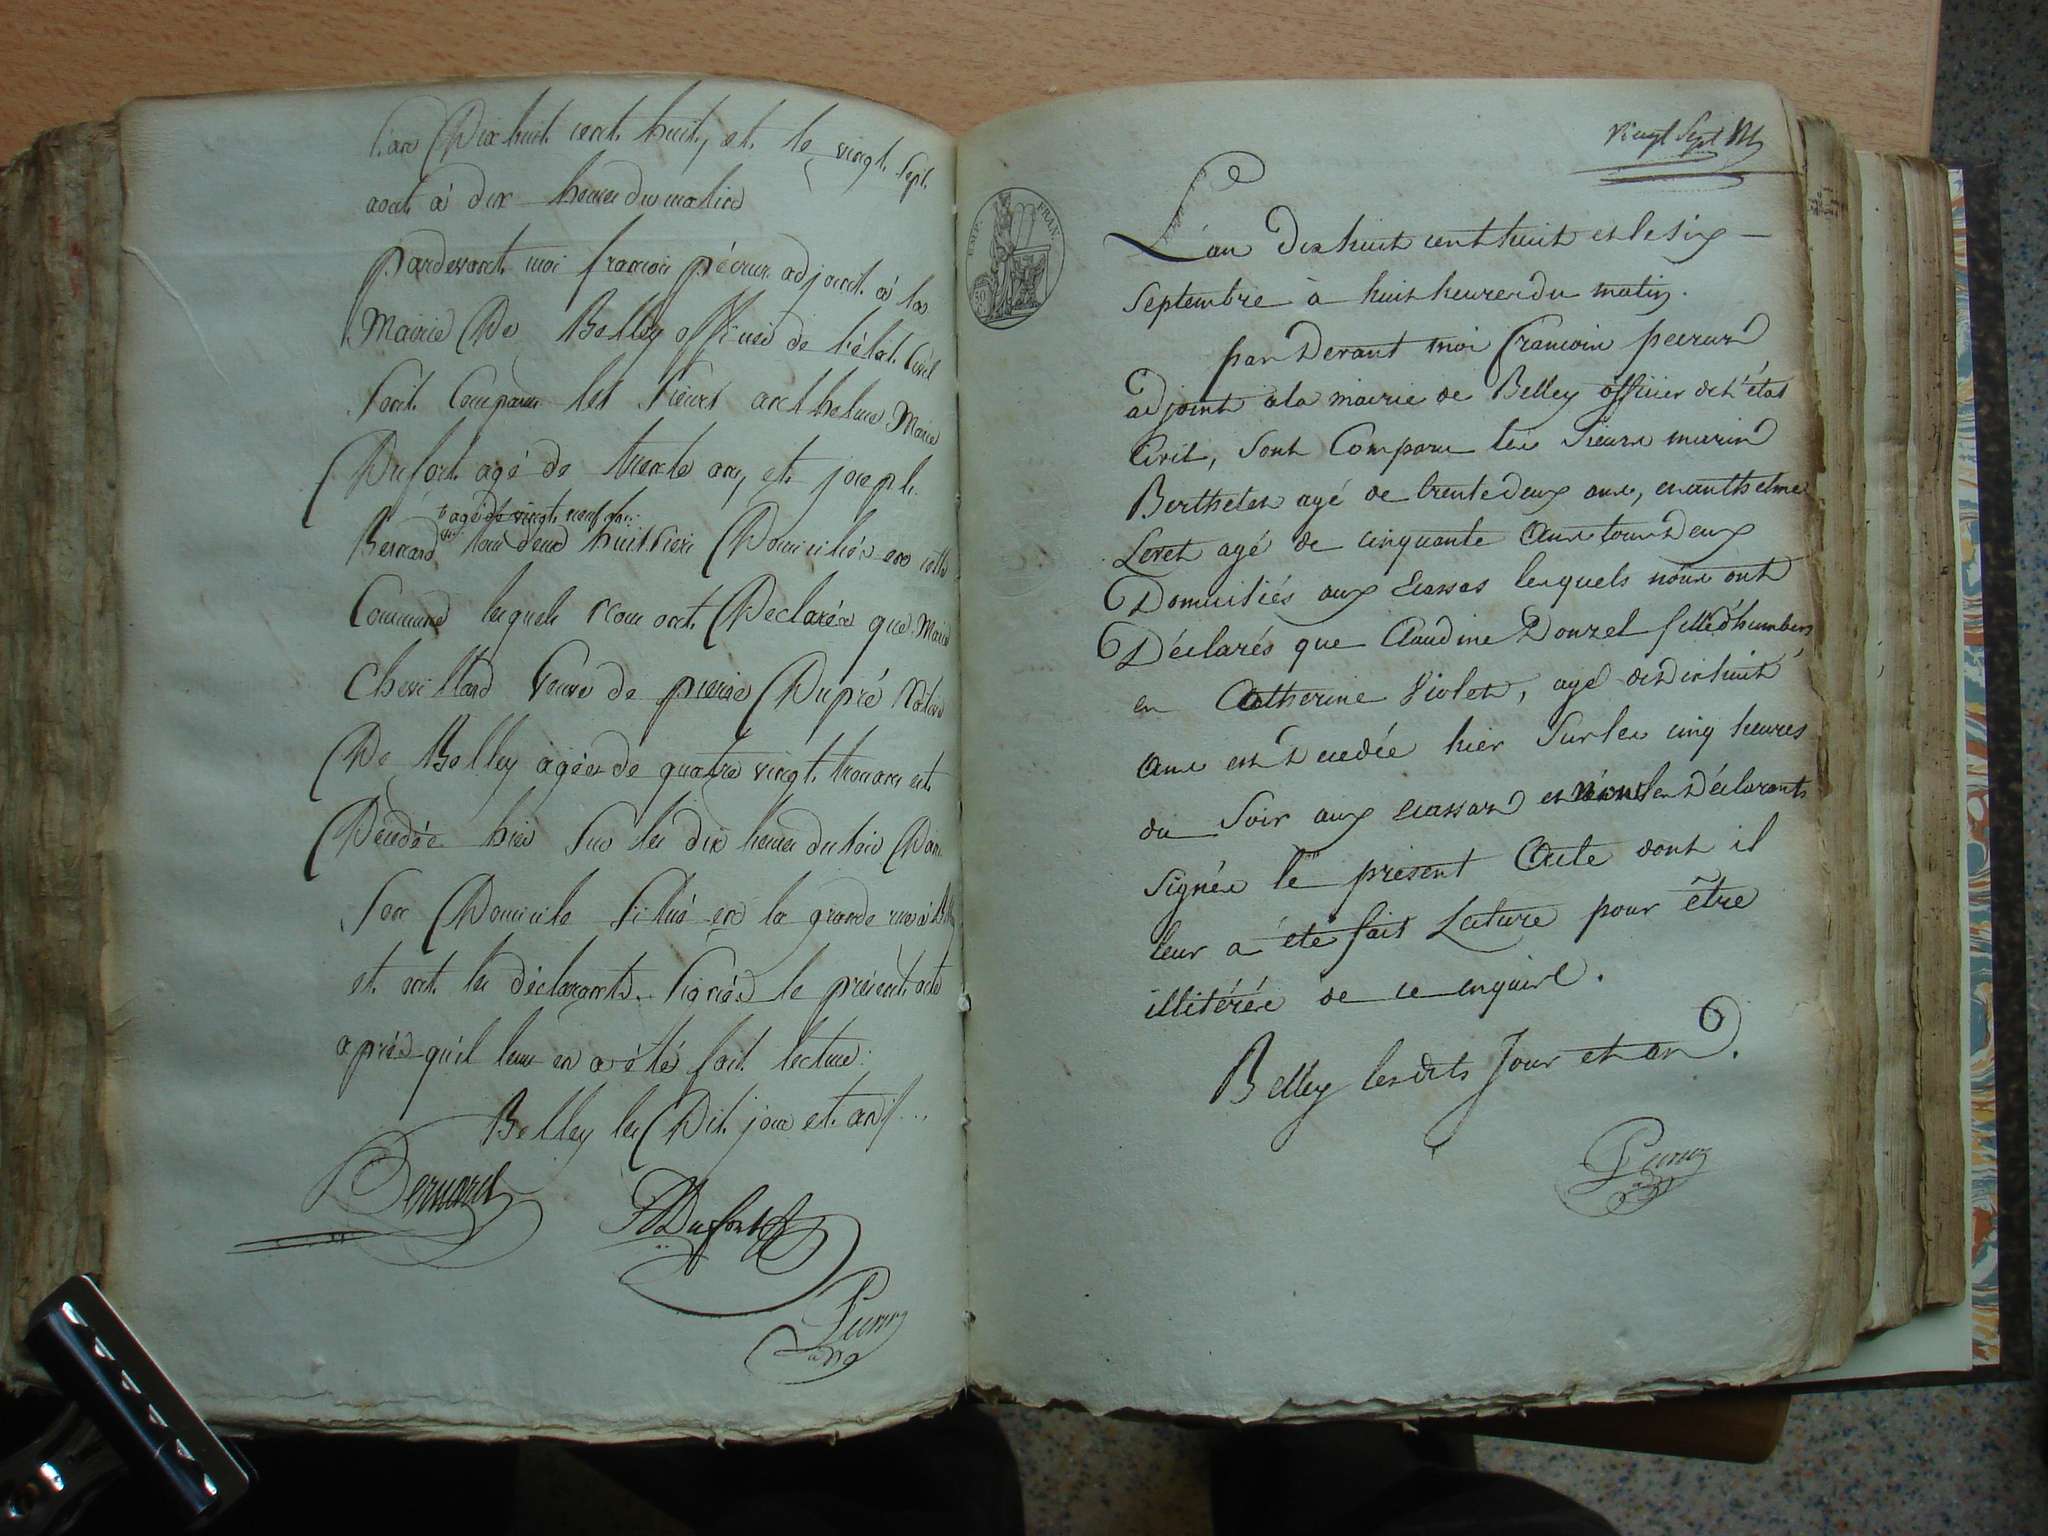 L'an Dix huit cent huit, et le vingt sept
aout à dix heures du matin
pardevant moi françois pécrux adjoint à la
Mairie De Belley officier de l'état Civil
Sont Comparus les Sieurs anthelme Marie
Dufort agé de trente ans, et joseph
agé de vingt neuf ans
Bernard tous deux huissiers Domiciliés en cette
Commune lesquels nous ont Declarés que Marie
Chevillard Veuve de pierre Dupré Native
De Belley agée de quatre vingt trois ans est
Décedée hier Sur les dix heures du soir Dans
Son Domicile Situé en la grande rue à Belley
et ont les déclarants Signés le présent acte
après qu'il leur en a été fait lecture
Belley les Dit jour et an
Bernard
Dufort
Vingt Sept
RÉP. FRAN.
50
L'an dix huit cent huit et le six
Septembre à huit heures du matin.
par Devant moi françois pecrux
adjoint a la mairie de Belley officier de l'état
Civil, Sont Comparu les Sieurs marin
Berthelet agé de trente deux ans, et anthelme
Levet agé de cinquante ans tous Deux
Domiciliés aux Ecassas lesquels nous ont
Déclarés que Claudine Donzel fille d'humbert
et Catherine Violet, agé de Dix huit
ans est Decedée hier Sur les cinq heures
du Soir aux ecassas et n'ont les Déclarants
Signés le présent Acte dont il
leur a été fait Lecture pour être
illitérés de ce enquis.
Belley lesdits Jour et an.